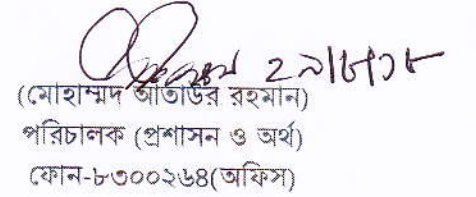 ২৯/৮/১৮
(মোহাম্মদ আতাউর রহমান)
পরিচালক (প্রশাসন ও অর্থ)
ফোন-৮৩০০২৬৪(অফিস)